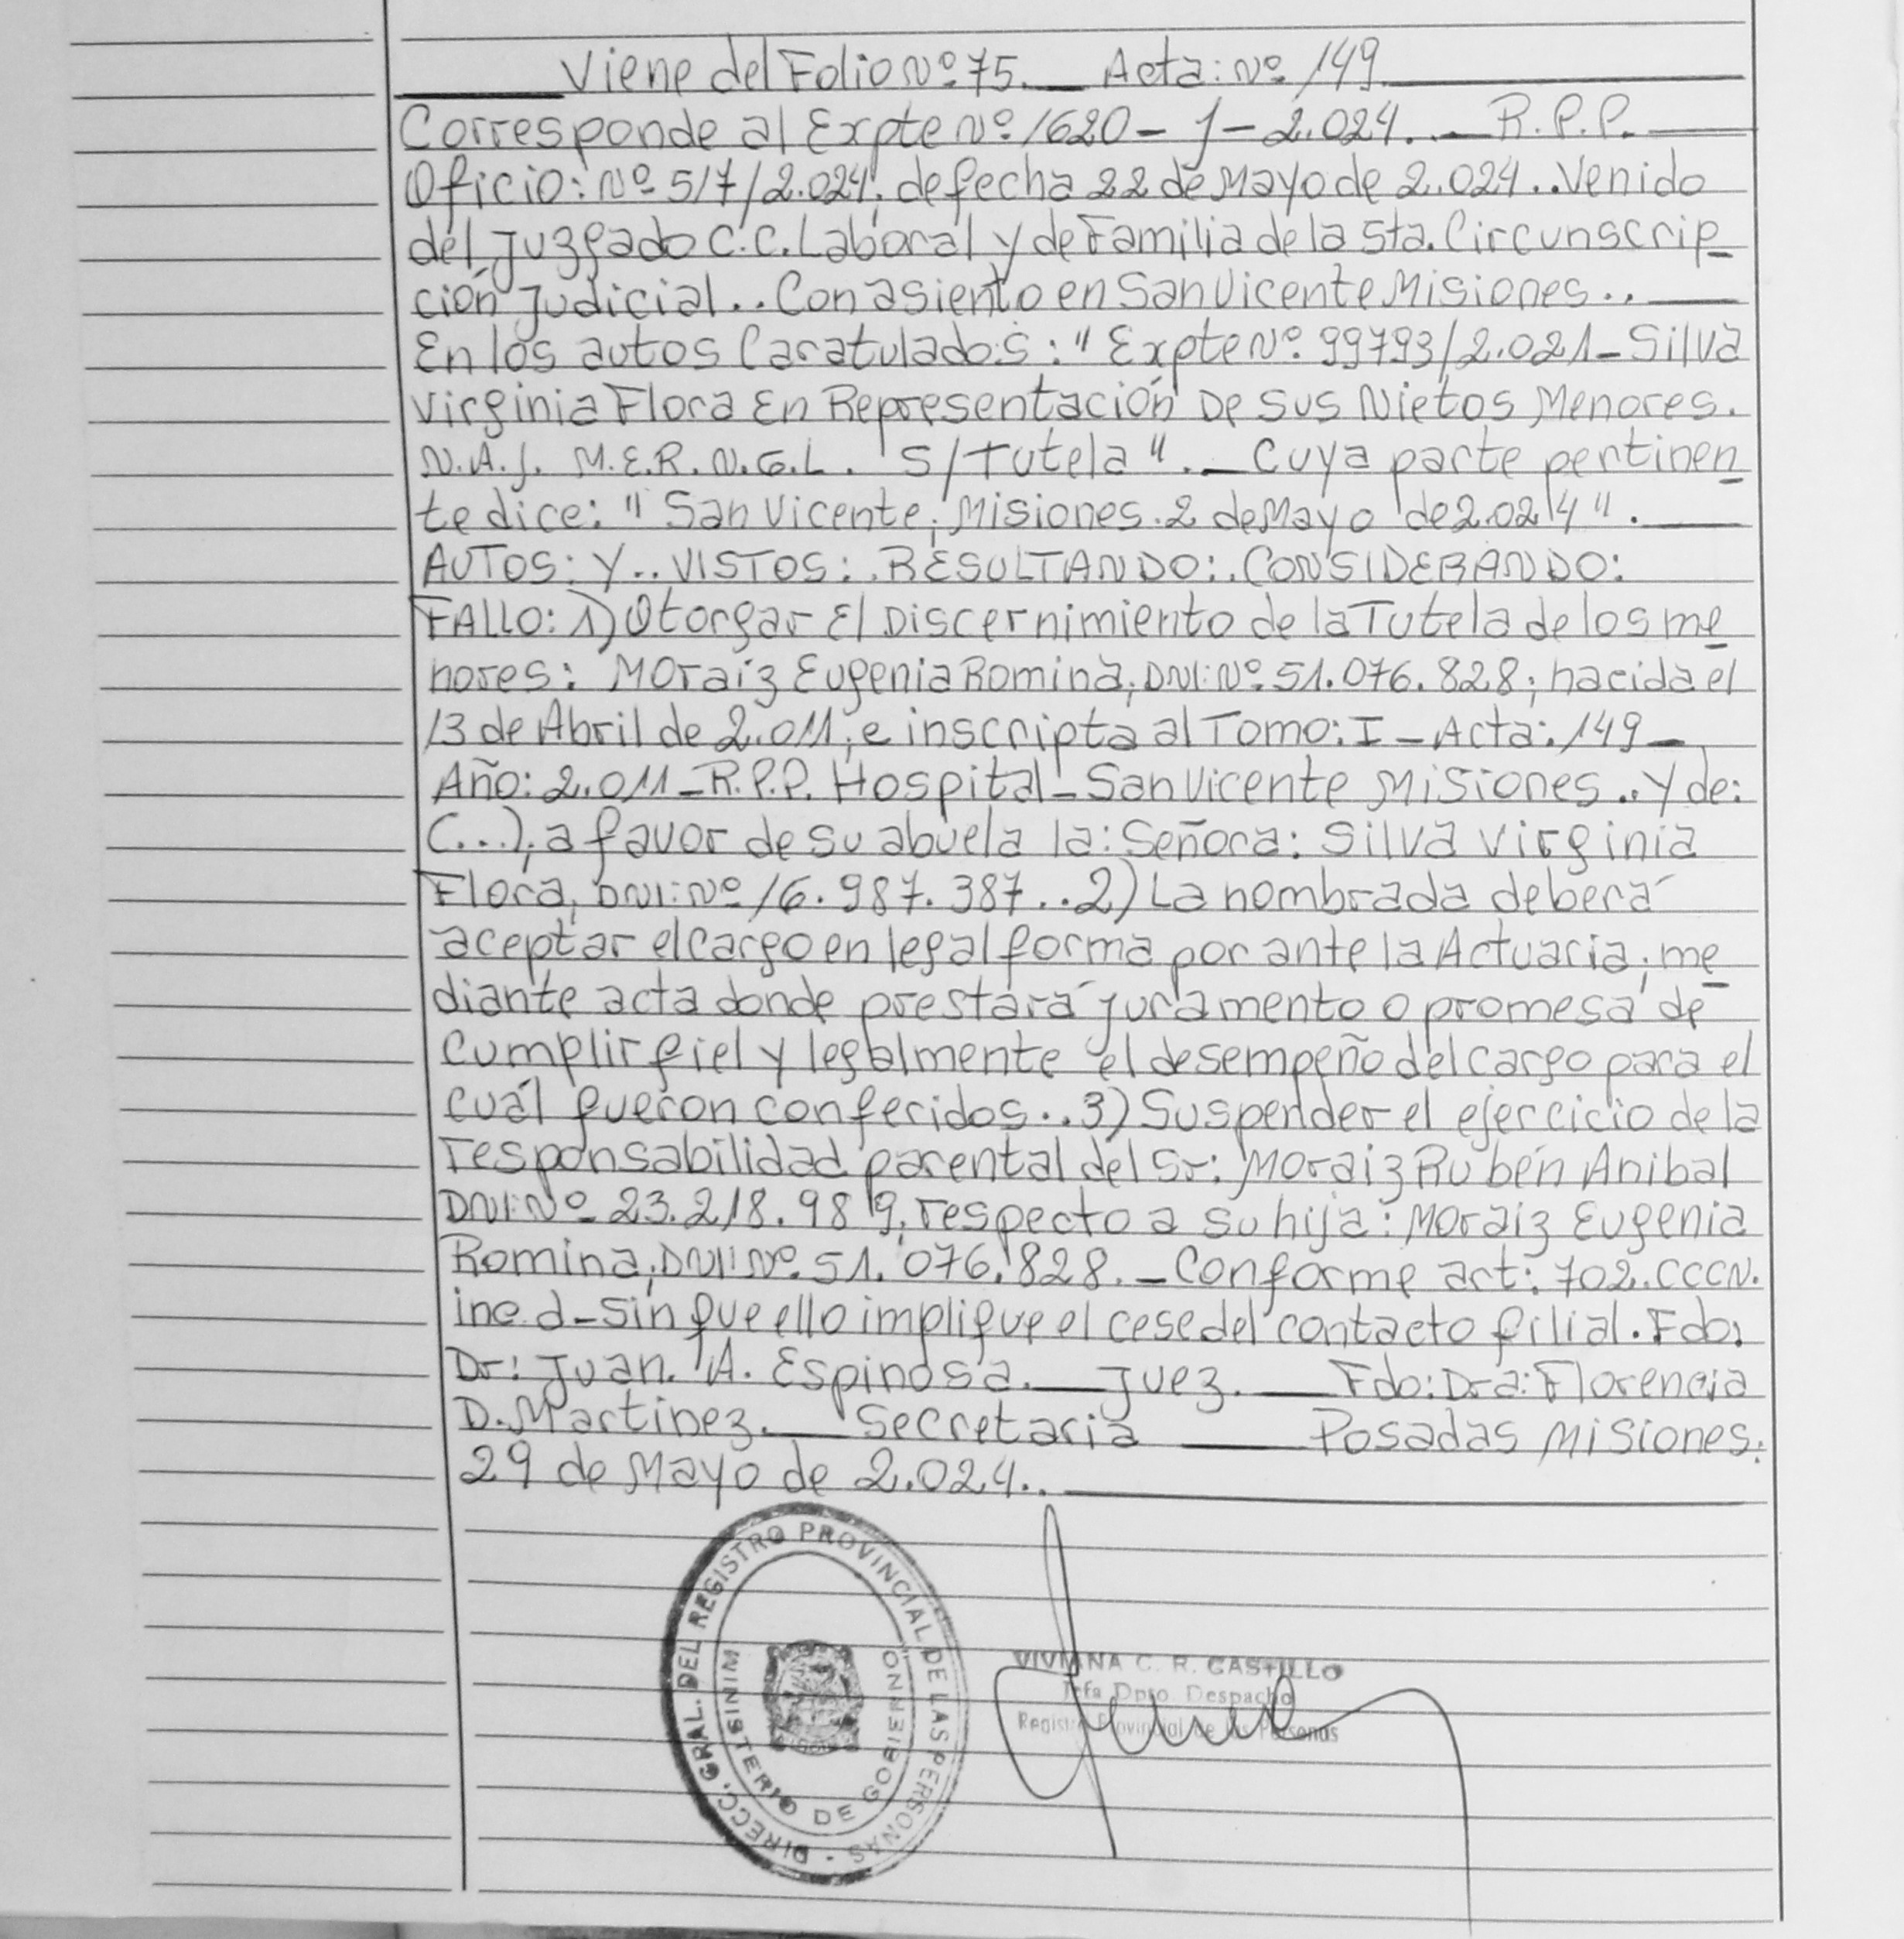 Viene del Folio Nº 75. Acta: Nº 149
Corresponde al Expte Nº 1620 - J - 2.024. R.P.P.
Oficio: Nº 517/2.024; de fecha 22 de Mayo de 2.024.. Venido
del Juzgado C.C. Laboral y de Familia de la 5ta. Circunscrip
ción Judicial.. Con asiento en San Vicente Misiones..
En los autos Caratulados: "Expte Nº 99793/2.021 - Silva
Virginia Flora En Representación De Sus Nietos Menores.
N.A.J. M.E.R. N.G.L. S/Tutela". Cuya parte pertinen
te dice: "San Vicente; Misiones. 2 de Mayo de 2.024".
AUTOS: Y.. VISTOS:. RESULTANDO:. CONSIDERANDO:
FALLO: 1) Otorgar El Discernimiento de la Tutela de los me
nores: Moraiz Eugenia Romina; DNI: Nº 51.076.828; nacida el
13 de Abril de 2.011; e inscripta al Tomo: I - Acta: 149 -
Año: 2.011 - R.P.P. Hospital - San Vicente Misiones.. Y de:
(...); a favor de su abuela la: Señora: Silva Virginia
Flora; DNI: Nº 16.987.387.. 2) La nombrada deberá
aceptar el cargo en legal forma por ante la Actuaria; me
diante acta donde prestará juramento o promesa de
Cumplir fiel y legalmente el desempeño del cargo para el
cuál fueron conferidos.. 3) Suspender el ejercicio de la
responsabilidad parental del Sr: Moraiz Rubén Anibal
DNI: Nº 23.218.989; respecto a su hija: Moraiz Eugenia
Romina; DNI: Nº 51.076.828. - Conforme art: 702. CCCN.
inc. d - Sin que ello implique el cese del contacto filial. Fdo:
Dr: Juan. A. Espinosa. Juez. Fdo: Dra: Florencia
D. Martinez. Secretaria Posadas Misiones:
29 de Mayo de 2.024..
DIRECC. GRAL. DEL REGISTRO PROVINCIAL DE LAS PERSONAS
MINISTERIO DE GOBIERNO
VIVIANA C. R. CASTILLO
Jefa Dpto. Despacho
Registro Provincial de las Personas